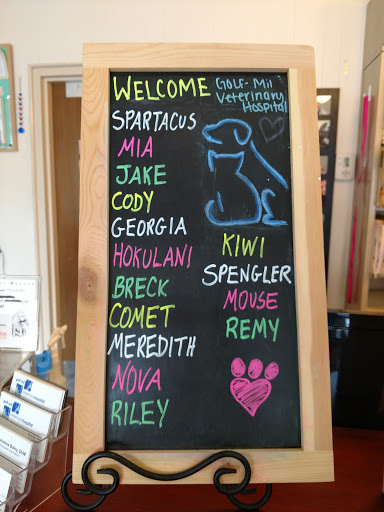 WELCOME
GOLF-Mil
Veterinary
Hospital
SPARTACUS
MIA
JAKE
CODY
GEORGIA
HOKULANI
BRECK
COMET
MEREDITH
NOVA
RILEY
KIWI
SPENGLER
MOUSE
REMY